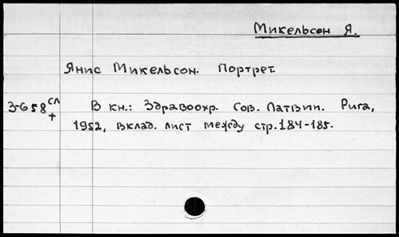 Микельсон Я.
Янис Микельсон. Портрет
3-658 сл +
В кн.: Здравоохр. Сов. Латвии. Рига,
1952, вклад. лист между стр. 184-185.